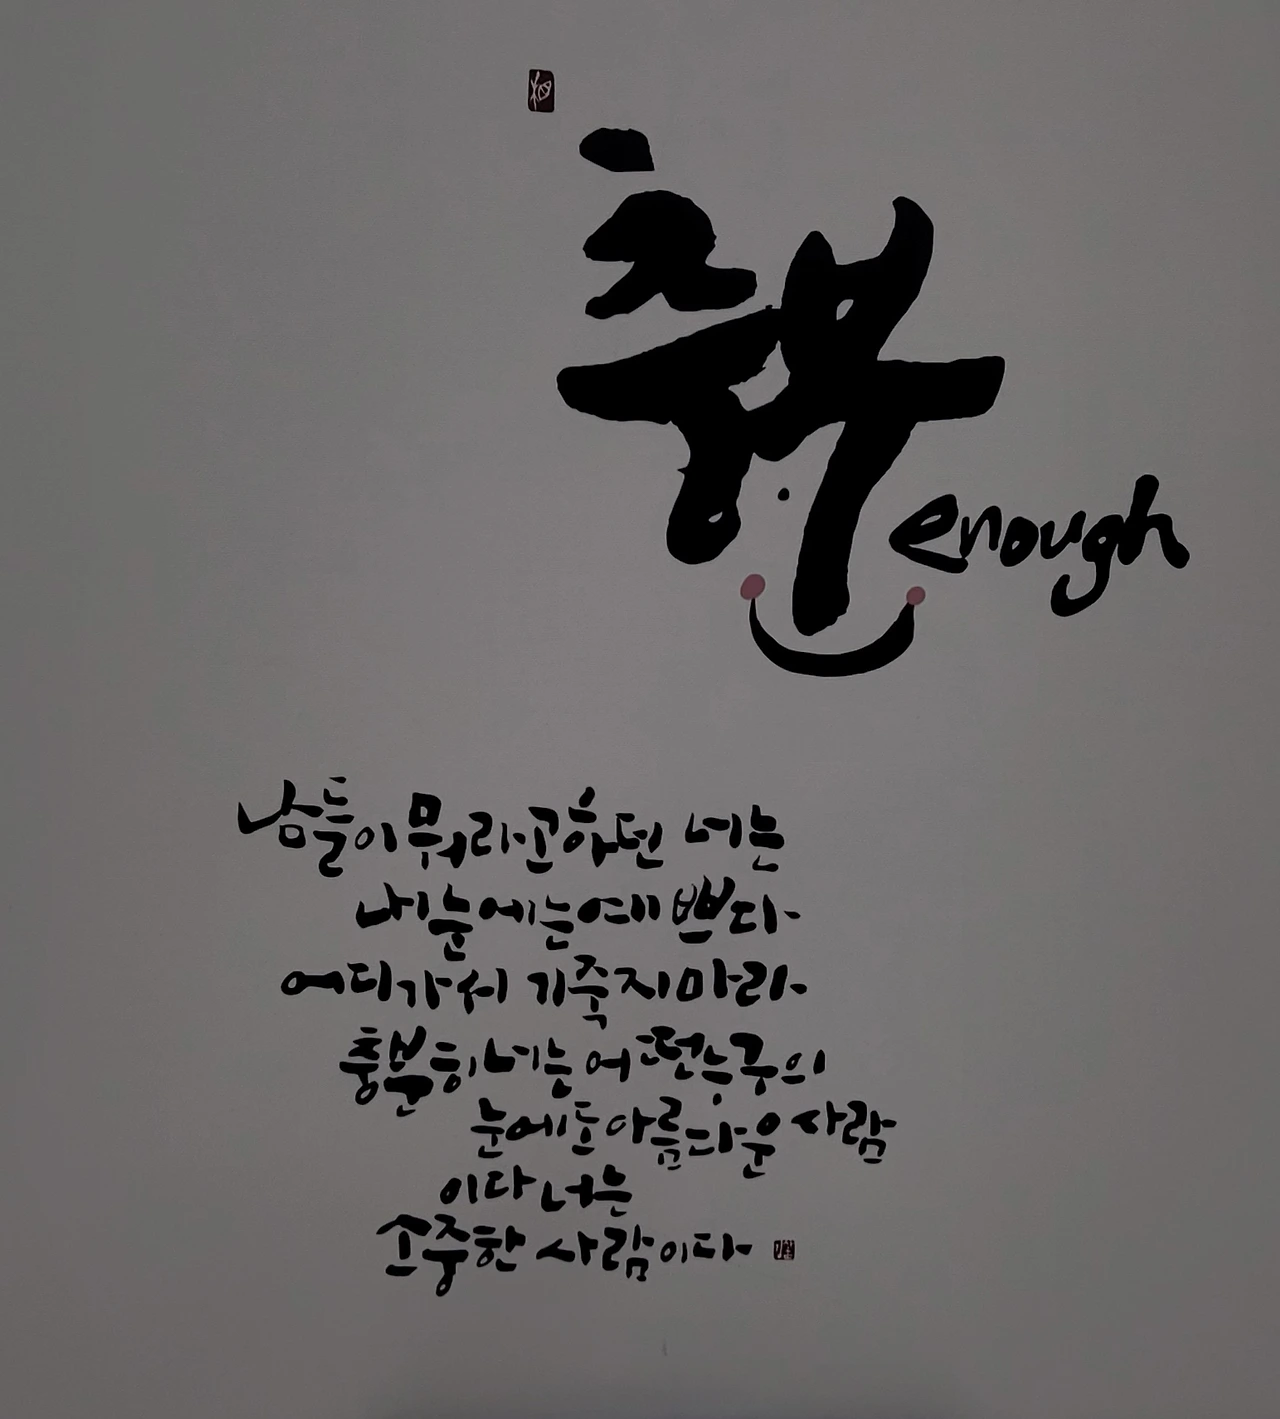 충분
enough
남들이 뭐라고 하던 너는
내 눈에는 예쁘다
어디가서 기죽지마라
충분히 너는 어떤 누구의
눈에도 아름다운 사람
이다 너는
소중한 사람이다